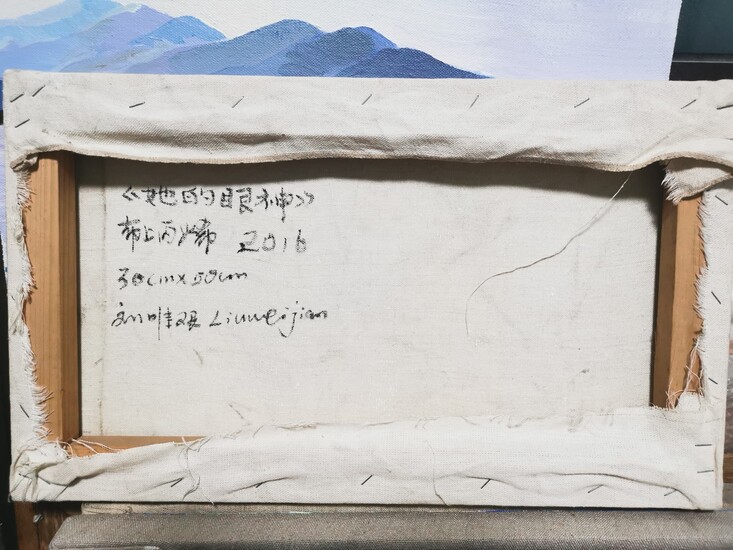 《她的眼神》
布上丙烯 2016
30cmx50cm
刘唯艰 Liuweijian